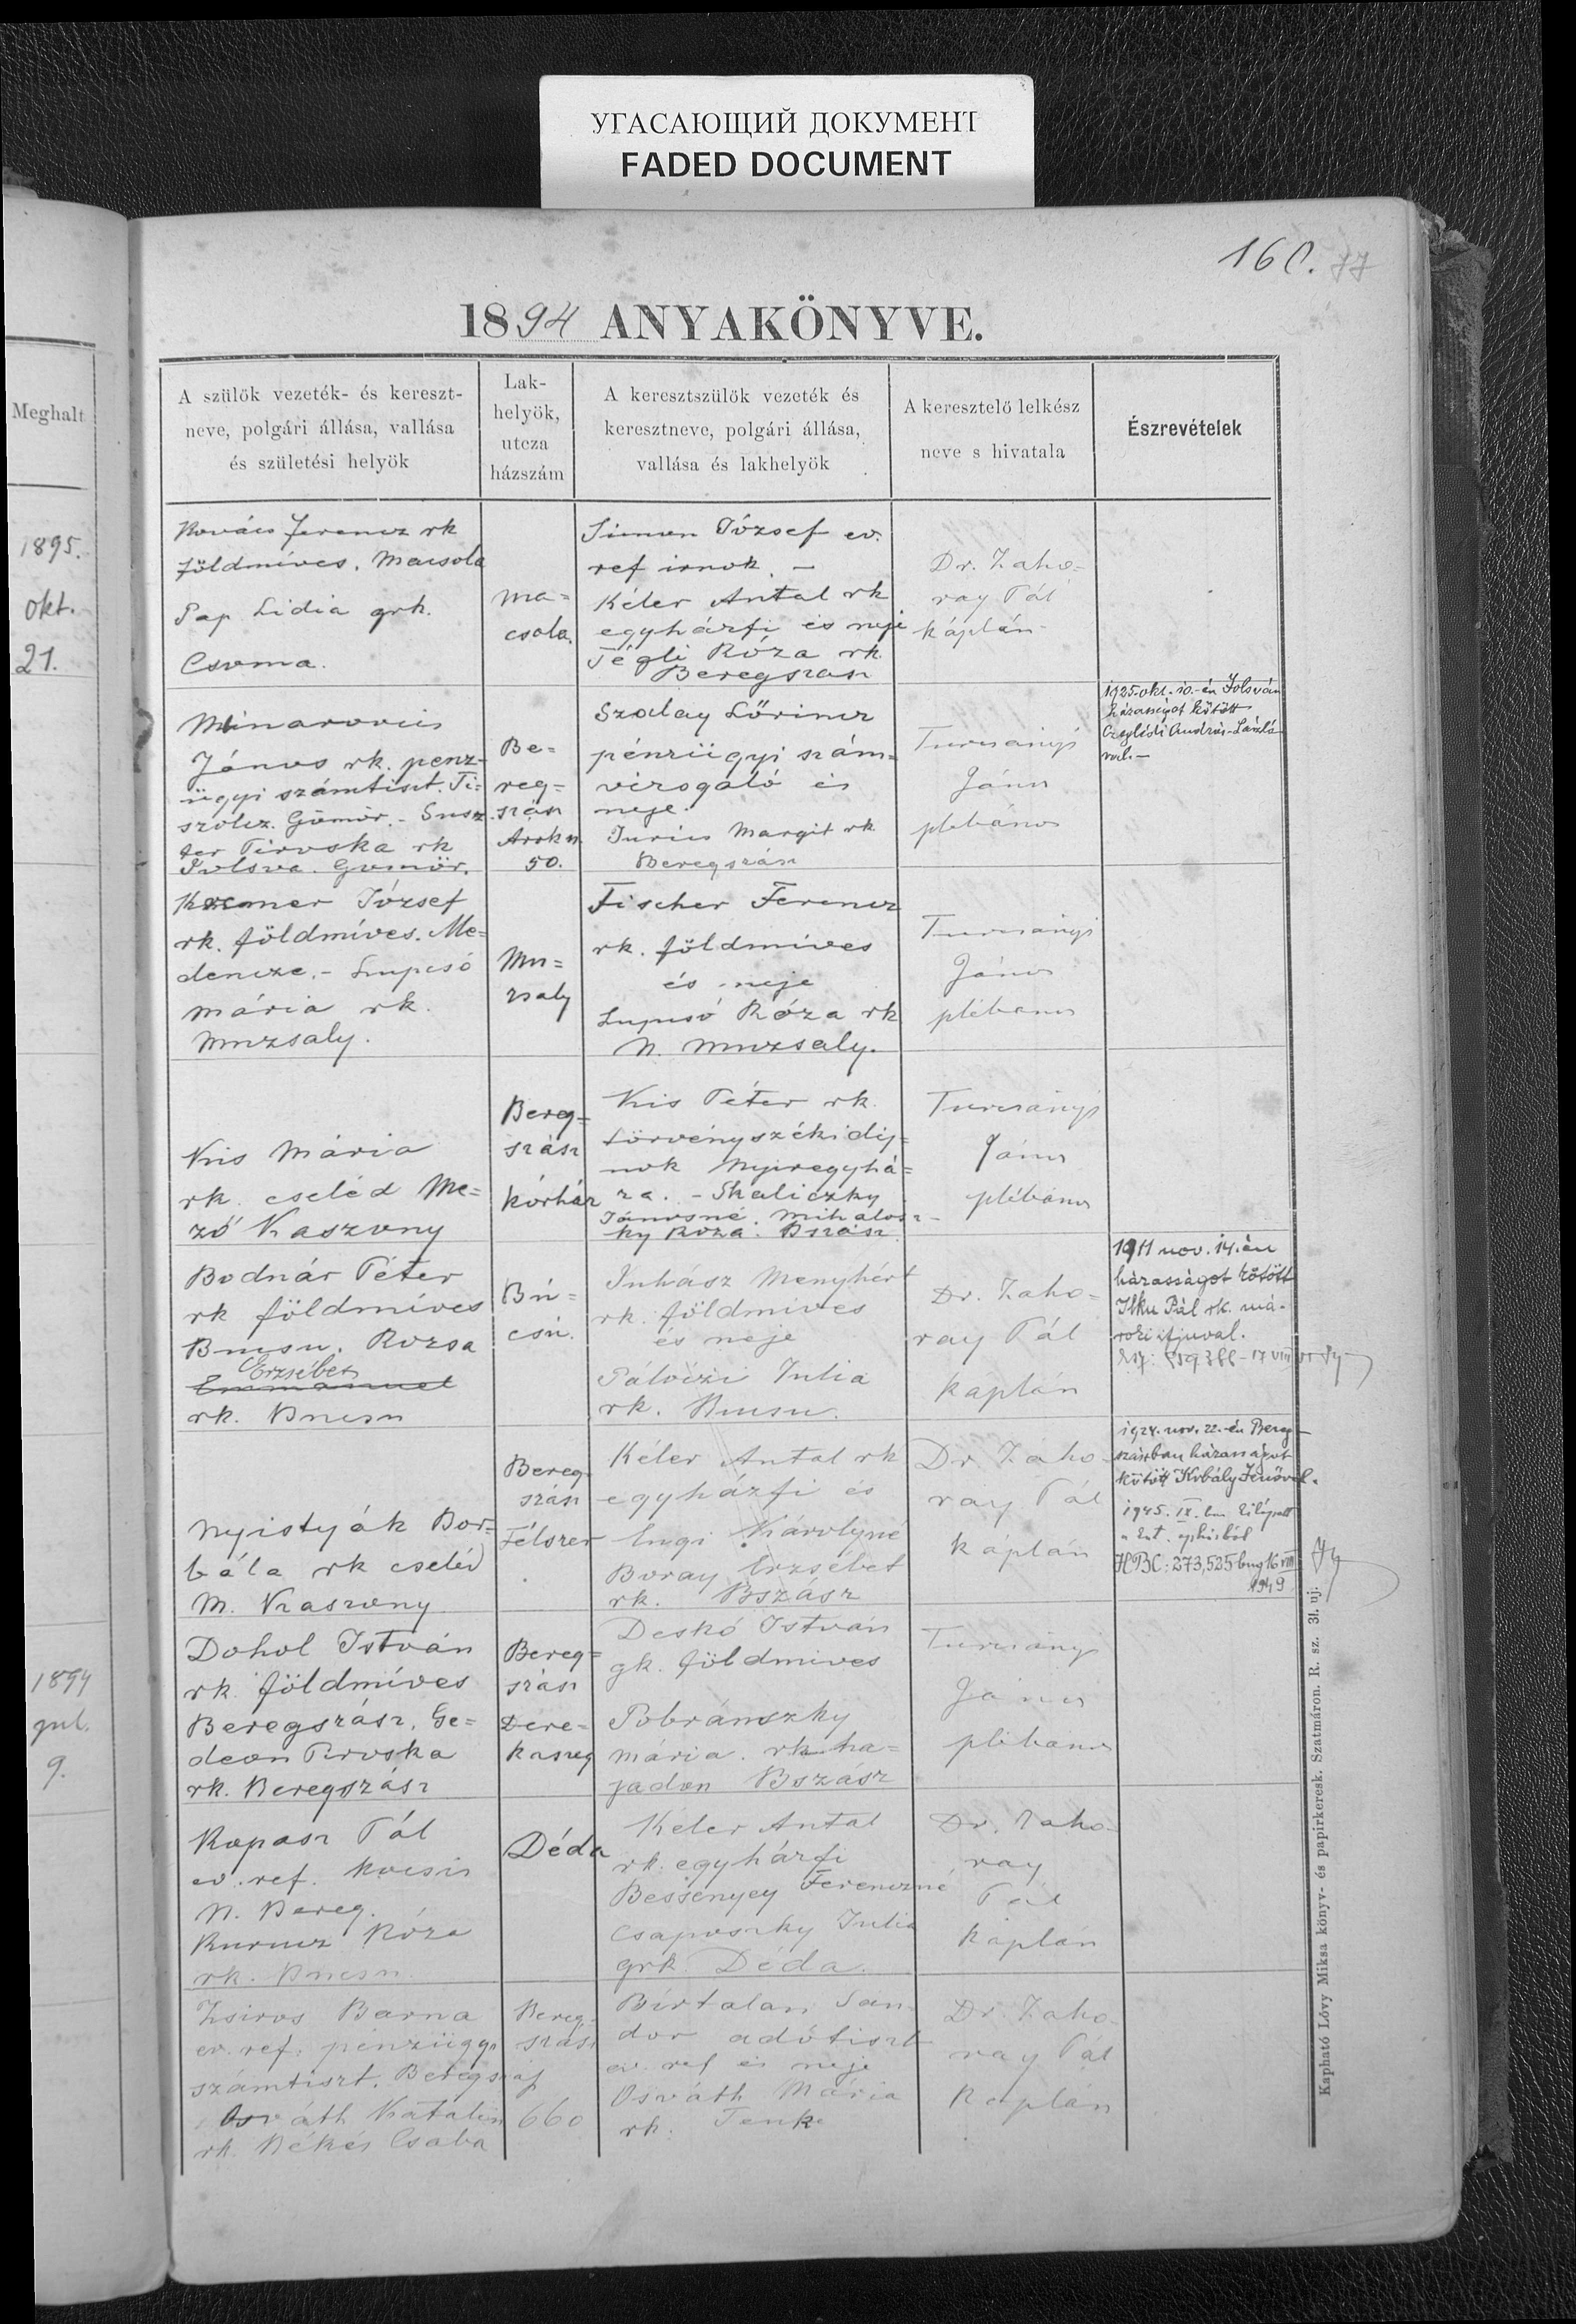 УГАСАЮЩИЙ ДОКУМЕНТ
FADED DOCUMENT
160. 77
1894 ANYAKÖNYVE.
Meghalt
1895.
okt.
21.
1894
jul.
9.
A szülők vezeték- és kereszt-
neve, polgári állása, vallása
és születési helyök
Lak-
helyök,
utcza
házszám
A keresztszülők vezeték és
keresztneve, polgári állása,
vallása és lakhelyök
A keresztelő lelkész
neve s hivatala
Észrevételek
Kovács Ferencz rk
földmíves. Macsola
Pap Lidia grk.
Csoma.
Ma=
csola.
Simon József ev.
ref irnok. –
Kéler Antal rk
egyházfi és neje
Tégli Róza rk.
Beregszász
Dr. Zaho=
ray Pál
káplán
Minarovics
János rk. penz-
ügyi számtiszt. Ti=
szolcz. Gömör. – Susz
ter Piroska rk
Jolsva. Gömör.
Be=
reg=
szász
50.
Szalay Lőrincz
pénzügyi szám=
vizsgáló és
neje.
Jurics Margit rk
Beregszász
Turcsányi
János
plebános
1925. okt. 10.-én Jolsván
házasságot kötött
Czeglédi András-László-
val.–
József
rk. földmíves. Me=
dencze. – Lupcsó
Mária rk.
Muzsaly.
Mu=
zsaly
Fischer Ferencz
rk. földmíves
és neje
Lupcsó Róza rk
N. Muzsaly.
Turcsányi
János
plébános
Kis Mária
rk. cseléd Me=
ző Kaszony
Bereg=
szász
kórház
Kis Péter rk.
törvényszéki dij=
nok Nyiregyhá=
za. – Skaliczky
Jánosné. Mihalov
ky Róza. Bszász
Turcsányi
János
plébános
Bodnár Péter
rk földmíves
Bucsu. Rozsa
Erzsébet
Emmanuel
rk. Bucsu
Bú=
csú.
Juhász Menyhért
rk. földmives
és neje
Pálóczi Julia
rk. Bucsu.
Dr. Zaho=
ray Pál
káplán
1911 nov. 14.én
házasságot kötött
Ilku Pál rk. má-
ifjuval.
Nyistyák Bor=
bála rk cseléd
M. Kaszony
Bereg
szász
Félszer
Kéler Antal rk
egyházfi és
Lugi Károlyné
Boray Erzsébet
rk. Bszász
Dr. Zaho-
ray Pál
káplán
1924. nov. 22.-én Bereg-
szászban házasságot
kötött Jenővel.
1945. IX.
Dohol István
rk. földmíves
Beregszász. Ge=
deon Piroska
rk. Beregszász
Bereg=
szász
Dere=
kaszeg
Deskó István
gk. földmives
Pobránszky
Mária. rk. ha=
jadon Bszász
Turcsányi
János
plébános
Kopasz Pál
ev. ref. kocsis
N. Bereg.
Kurucz Róza
rk. Bucsu
Déda
Kéler Antal
rk. egyházfi
Bessenyey Ferenczné
Csaposzky Julia
grk. Déda.
Dr. Zaho-
ray
Pál
káplán
Zsiros Barna
ev. ref. pénzügyi
számtiszt. Beregszász
Osváth Katalin
rk. Békés Csaba
Bereg-
szász
660
Birtalan Sán-
dor adótiszt
ev. ref és neje
Osváth Mária
rk. Tenke
Dr. Zaho-
ray Pál
Káplán
Kapható Lővy Miksa könyv- és papirkeresk. Szatmáron. R. sz. 3l. uj.